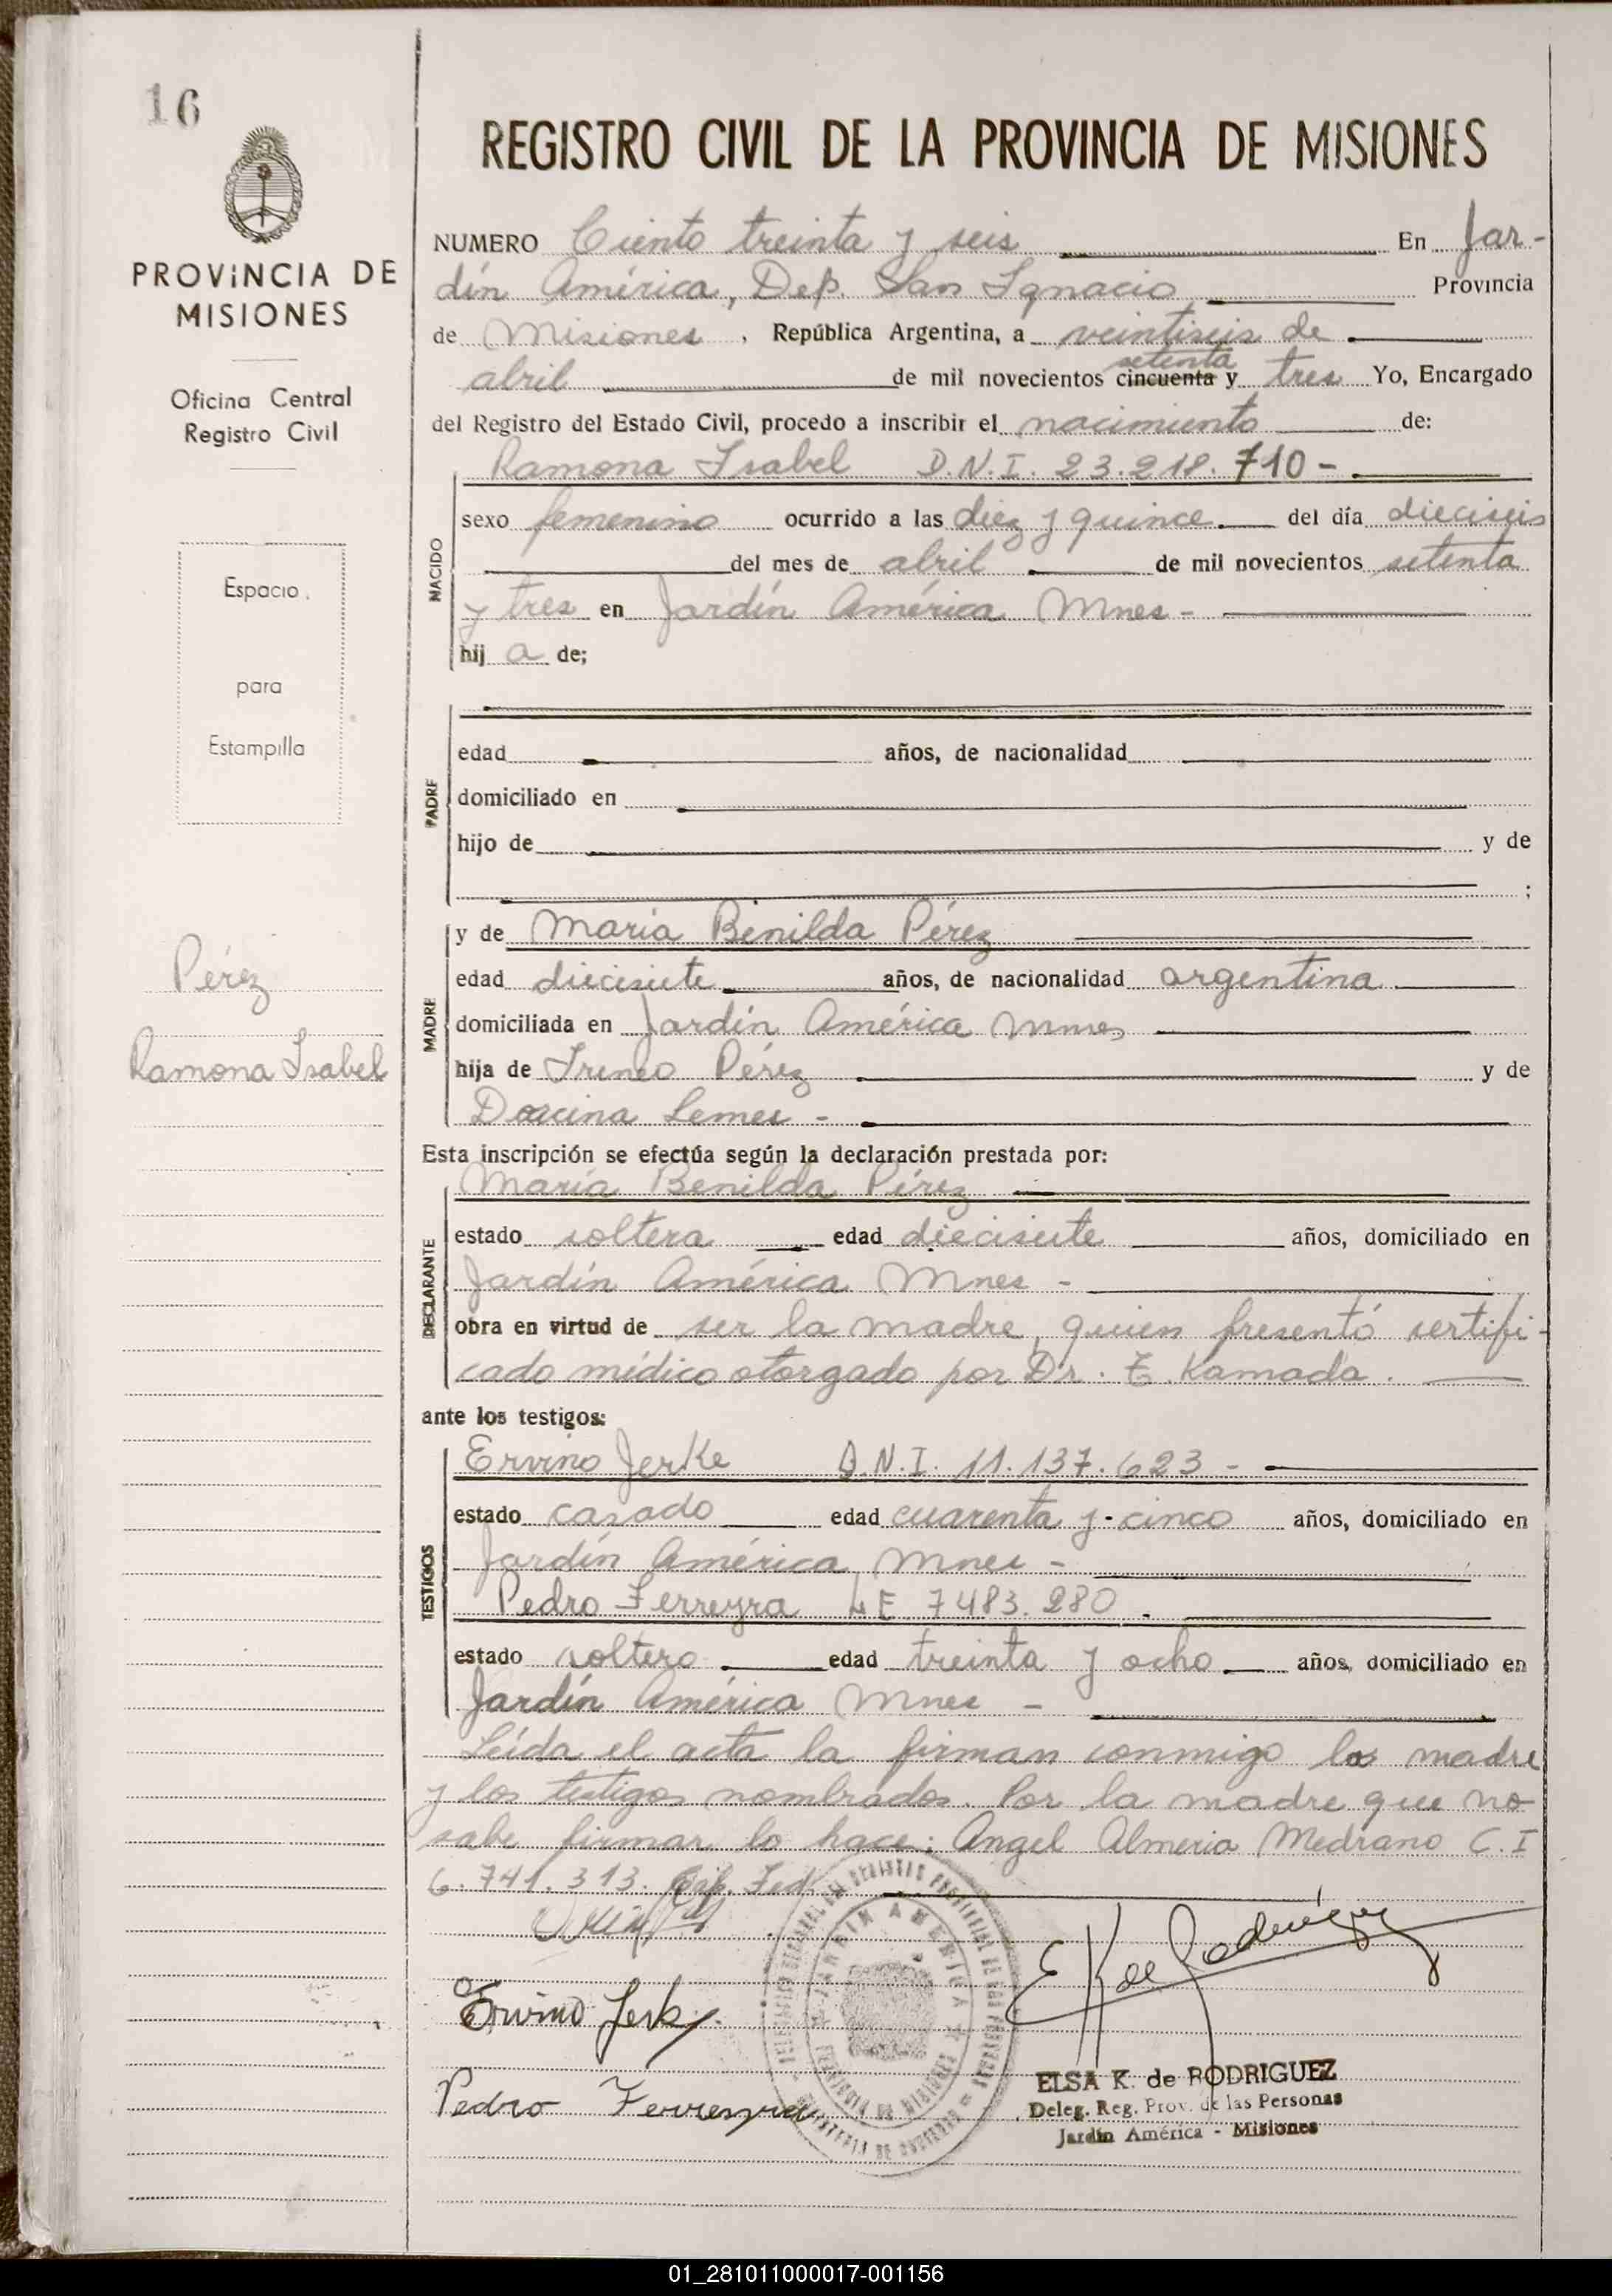 16
PROVINCIA DE
MISIONES
Oficina Central
Registro Civil
Espacio
para
Estampilla
Pérez
Ramona Isabel
REGISTRO CIVIL DE LA PROVINCIA DE MISIONES
NUMERO Ciento treinta y seis En Jar-
dín América, Dep. San Ignacio, Provincia
de Misiones, República Argentina, a veintiseis de
setenta
abril de mil novecientos cincuenta y tres Yo, Encargado
del Registro del Estado Civil, procedo a inscribir el nacimiento de:
Ramona Isabel D.N.I. 23.218.710-
NACIDO
sexo femenino ocurrido a las diez y quince del día dieciseis
del mes de abril de mil novecientos setenta
y tres en Jardín América Mnes-
hij a de;
PADRE
edad años, de nacionalidad
domiciliado en
hijo de y de
;
MADRE
y de María Benilda Pérez
edad diecisiete años, de nacionalidad argentina
domiciliada en Jardín América Mnes
hija de Ireneo Pérez y de
Lemes -
Esta inscripción se efectúa según la declaración prestada por:
DECLARANTE
María Benilda Pérez
estado soltera edad diecisiete años, domiciliado en
Jardín América Mnes -
obra en virtud de ser la madre, quien presentó sertifi-
cado médico otorgado por Dr. T. Kamada.
ante los testigos:
TESTIGOS
Ervino Jerke D.N.I. 11.137.623 -
estado casado edad cuarenta y cinco años, domiciliado en
Jardín América Mnes -
Pedro Ferreyra LE 7483.280.
estado soltero edad treinta y ocho años, domiciliado en
Jardín América Mnes -
Leída el acta la firman conmigo la madre
y los testigos nombrados. Por la madre que no
sabe firmar lo hace: Angel Almeria Medrano C.I
6.741.313. Fed.
Ervino Jerke
Pedro Ferreyra
JARDIN AMERICA
PROVINCIA DE MISIONES
E K de Rodríguez
ELSA K. de RODRIGUEZ
Deleg. Reg. Prov. de las Personas
Jardín América - Misiones
01_281011000017-001156